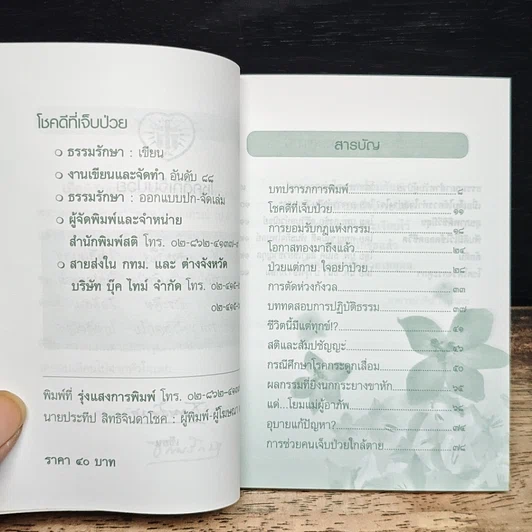 โชคดีที่เจ็บป่วย
ธรรมรักษา : เขียน
งานเขียนและจัดทำ อันดับ ๘๘
ธรรมรักษา : ออกแบบปก-จัดเล่ม
ผู้จัดพิมพ์และจำหน่าย
สำนักพิมพ์สติ โทร. ๐๒-๘๖๒-๔๑๓๗-
สายส่งใน กทม. และ ต่างจังหวัด
บริษัท บุ๊ค ไทม์ จำกัด โทร. ๐๒-๔๑๕-
๐๒-๔๑๕-
พิมพ์ที่ รุ่งแสงการพิมพ์ โทร. ๐๒-๘๖๒-๔๑๓๗
นายประทีป สิทธิจินดาโชค : ผู้พิมพ์-ผู้โฆษณา
ราคา ๔๐ บาท
สารบัญ
บทปรารภการพิมพ์
โชคดีที่เจ็บป่วย ๑๑
การยอมรับกฎแห่งกรรม ๑๘
โอกาสทองมาถึงแล้ว ๒๔
ป่วยแต่กาย ใจอย่าป่วย ๒๘
การตัดห่วงกังวล ๓๓
บททดสอบการปฏิบัติธรรม ๓๗
ชีวิตนี้มีแต่ทุกข์!? ๔๑
สติและสัมปชัญญะ
กรณีศึกษาโรคกระดูกเสื่อม
ผลกรรมที่ยิงนกกระยางขาหัก
แด่...โยมแม่ผู้อาภัพ
อุบายแก้ปัญหา?
การช่วยคนเจ็บป่วยใกล้ตาย ๗๘